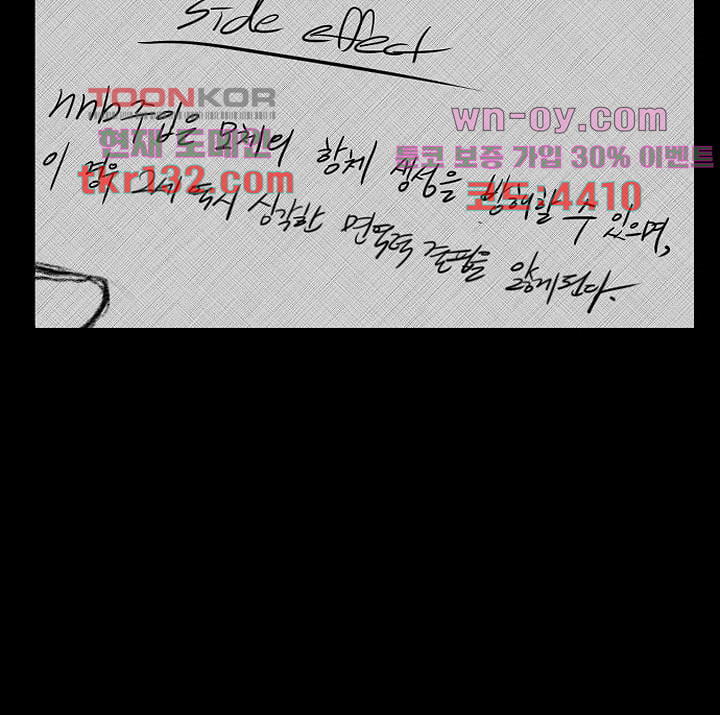 side effect
TOONKOR
nnb주입은 모체의 항체 생성을 방해할 수 있으며,
현재 도메인
wn-oy.com
툰코 보증 가입 30% 이벤트
tkr132.com
코드:4410
이 경우 그 즉시 심각한 면역력 결핍을 앓게된다.